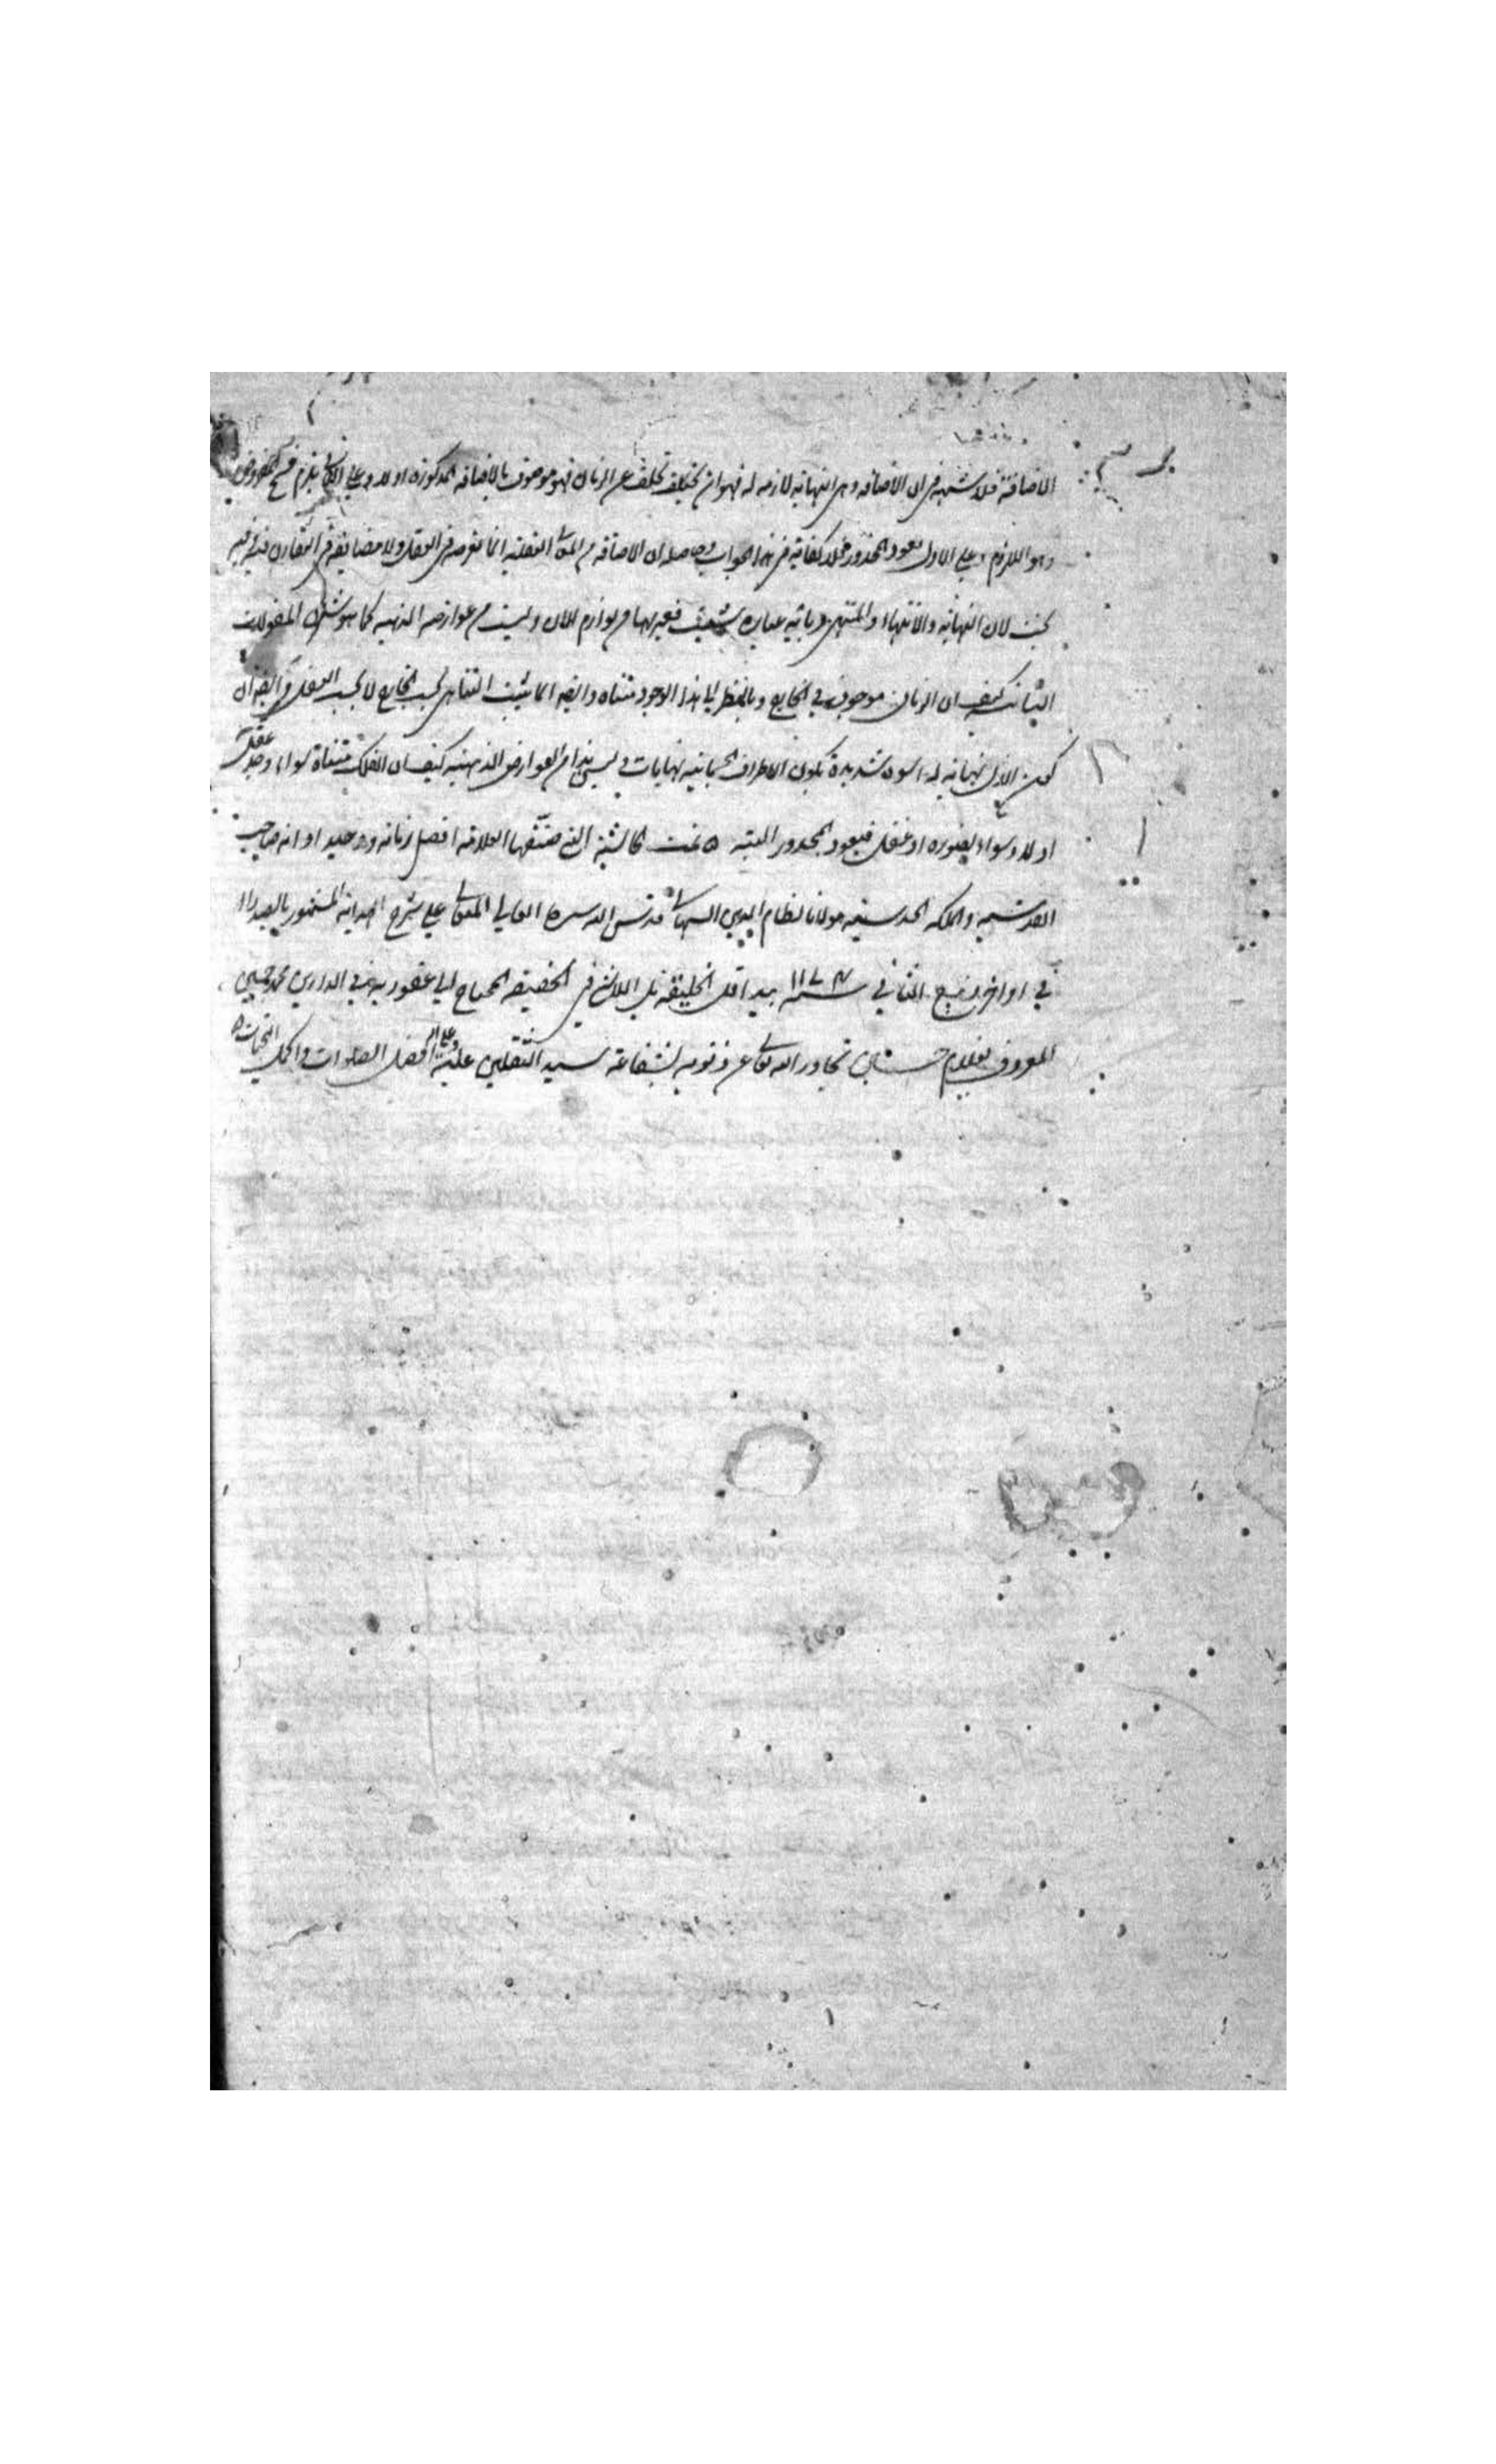 الاضافة فلا شبهة في ان الاضافه وهي النهايه لازمه له فهو ان تخلف عن الزمان فهو موصوف بالاضافه المذكوره اولا وعلى الثاني يلزم
وهو اللازم وعلى الاول يعود المحذور فلا كفاية في هذا الجواب وحاصله ان الاضافه من المعاني العقليه انما تعرضه في العقل ولا مضايقة في التقارن فيه وفيه
بحث لان النهاية والانتهاء والمتنهى وليست من عوارضه الذهنيه كما هو شان المعقولات
الثانيه كيف ان الزمان موجود في الخارج وبالنظر الى هذا الوجود متناه وايضا انما يثبت التناهي بحسب الخارج لا بحسب العقل
كون الاول نهايه له اسوة شديدة بكون الاطراف الجسمانيه نهايات وليس هذا من العوارض الذهنيه كيف ان الفلك متناه سواء وجد عقل
اولا وسواء تصوره او غفل فيعود المحذور البته ٥ تمت الحاشية التي صنفها العلامه افضل زمانه ووحيد اوانه صاحب
القدسيه والملكه الحدسيه مولانا نظام الدين السهالي قدس الله سره العالي المتعالي على شرح الهدايه المشهور بالصدرا
في اواخر ربيع الثاني سنة ١١٧٤ بيد اقل الخليقة بل اللاشئ في الحقيقه المحتاج الى عفو ربه محمد
المعروف بغلام تجاوز الله تعالى عن ذنوبه بشفاعة سيد الثقلين عليه وعلى اله افضل الصلوات واكمل التحيات ٥